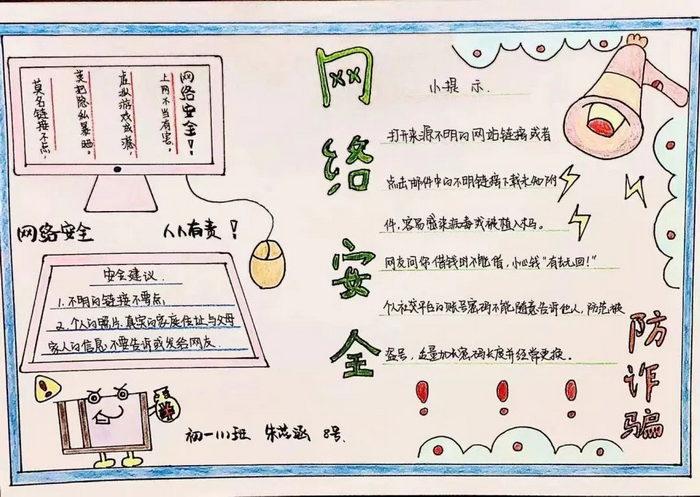 网络安全!
上网不当有害,
虚拟游戏成瘾,
莫把隐私暴晒。
莫名链接不点,
网络安全 人人有责!
安全建议
1.不明的链接不要点
2.个人的照片.真实的家庭住址与父母
家人的信息.不要告诉或发给网友.
初一(1)班 朱芯涵 8号.
网络安全
小提示.
打开来源不明的网站链接或者
点击邮件中的不明链接下载未知附
件,容易感染病毒或被植入木马。
网友问你借钱时不能借,小心钱"有去无回!"
个人社交平台的账号密码不能随意告诉他人,防范被
盗号,尽量加长密码长度并经常更换.
防诈骗